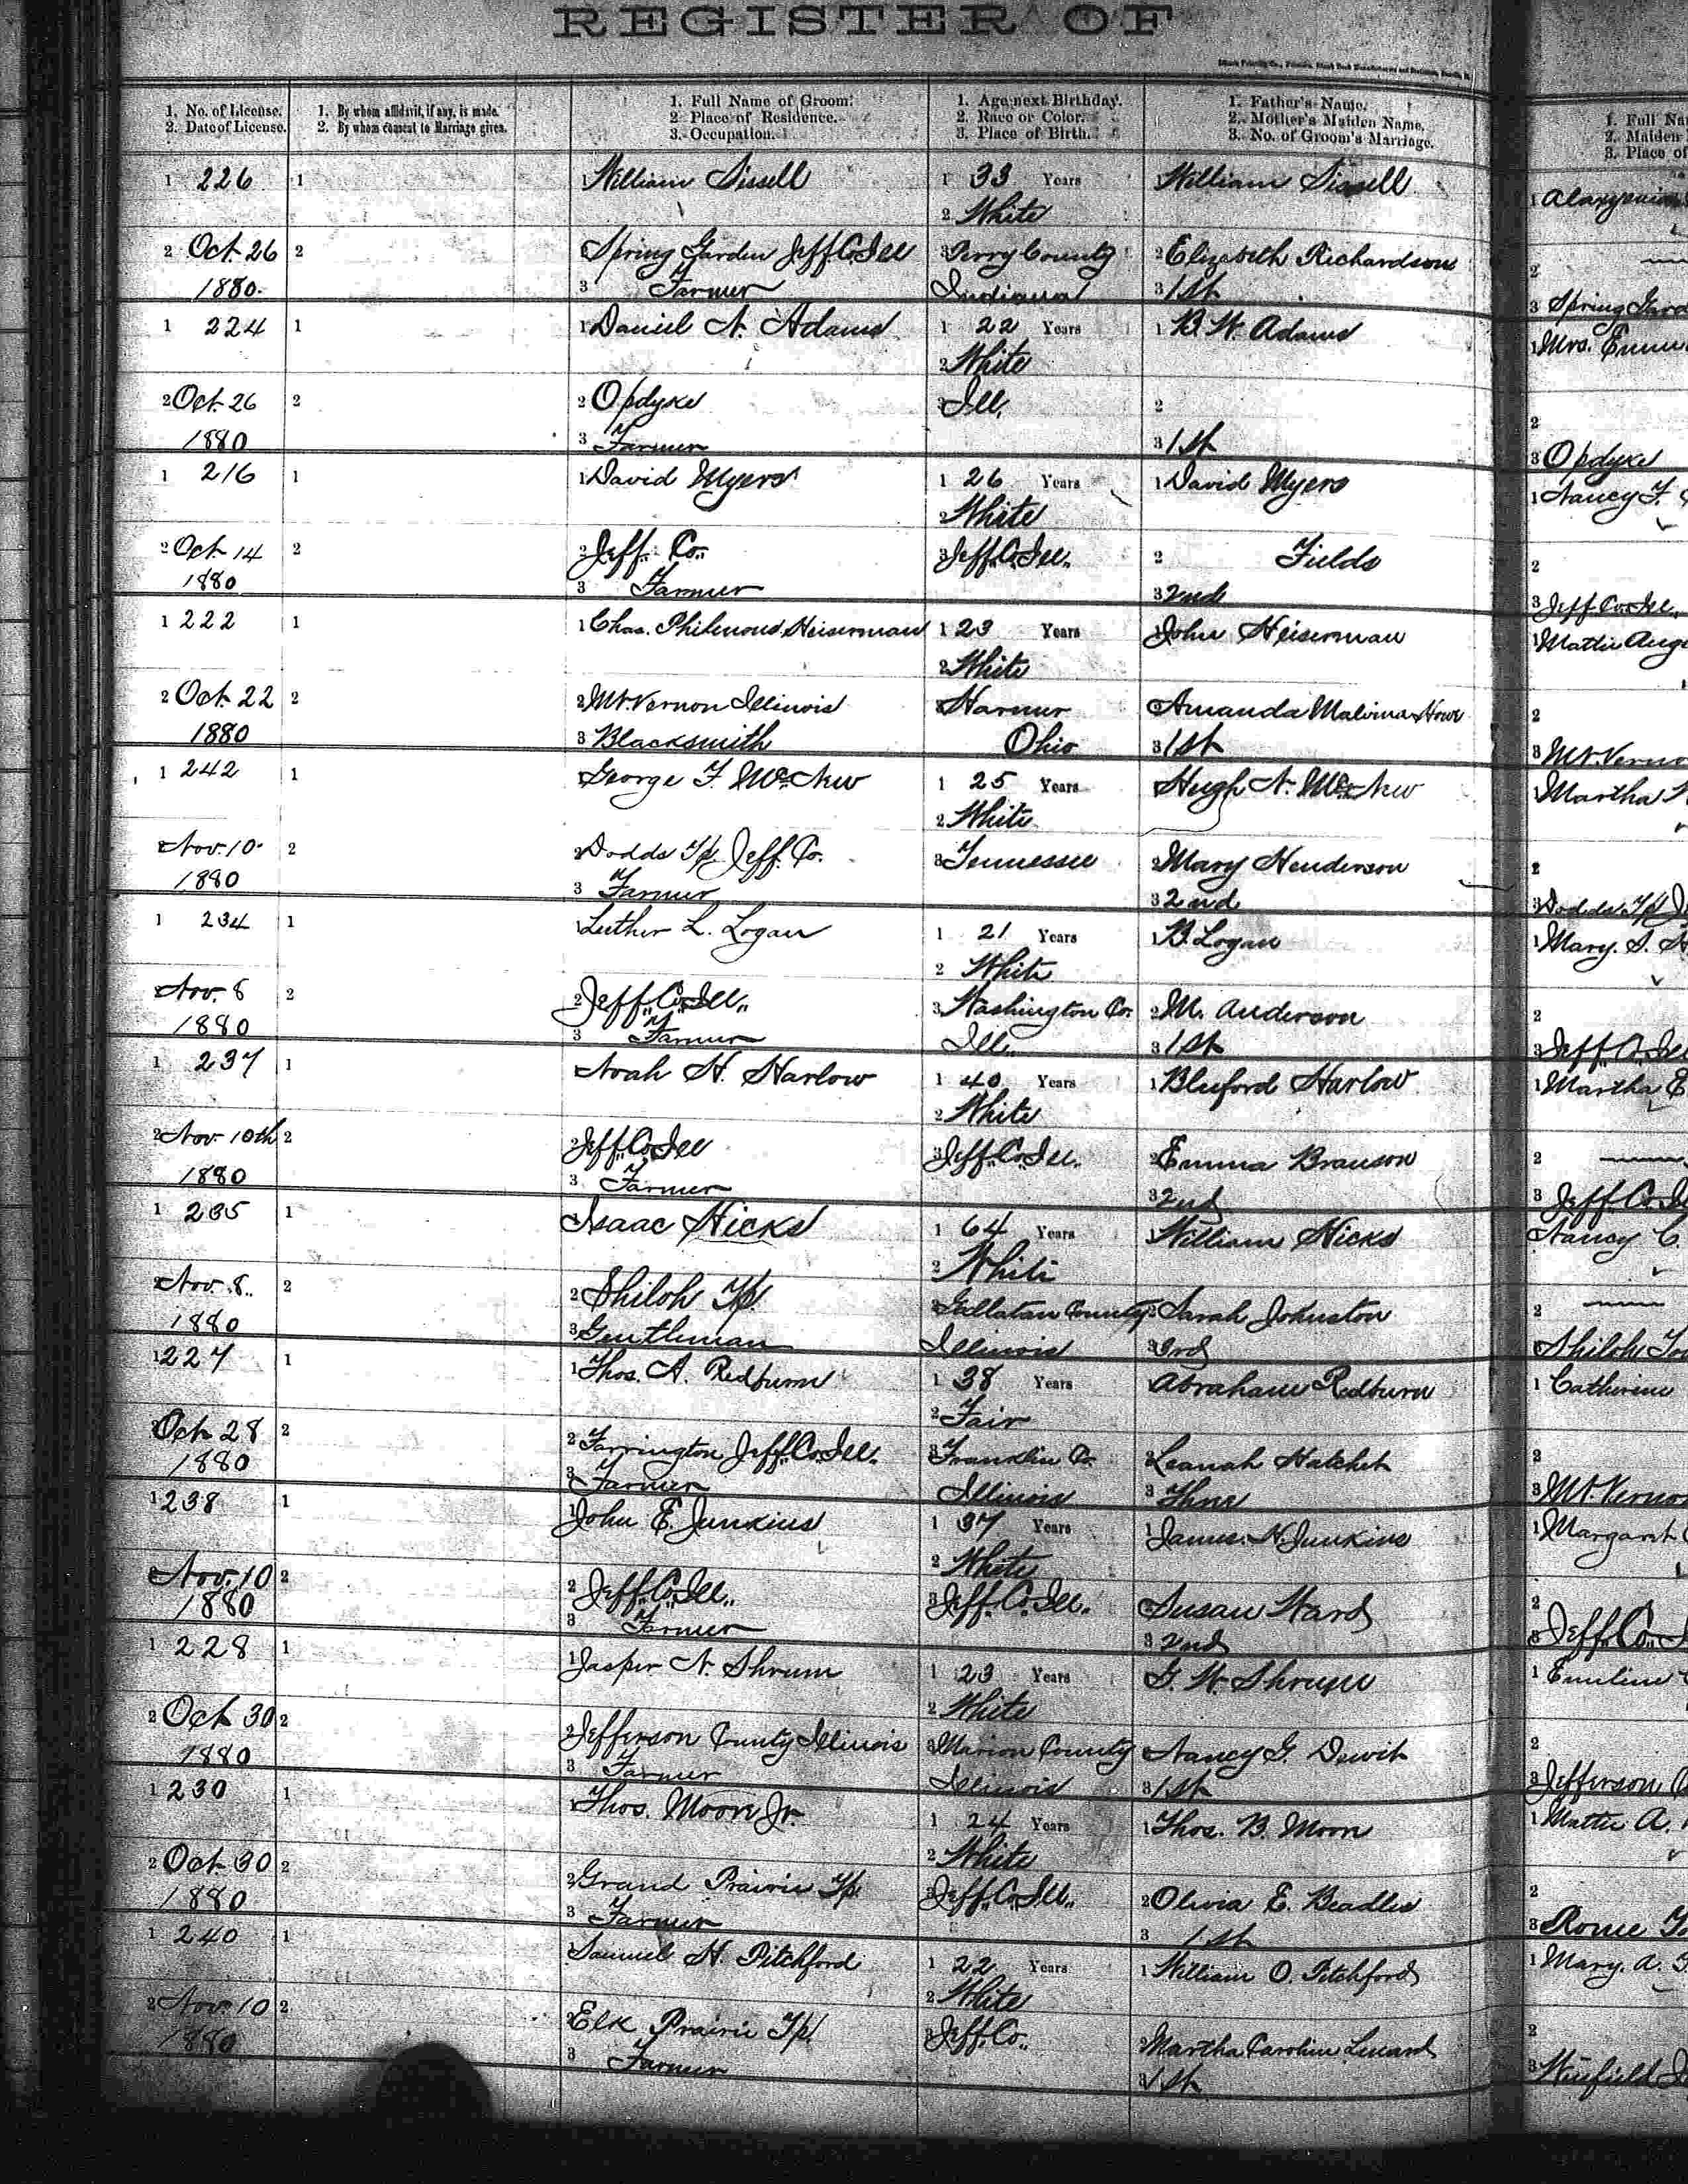 REGISTER OF
1. No. of License.
2. Date of License.
1. By whom affidavit, if any, is made.
2. By whom consent to Marriage given.
1. Full Name of Groom.
2 Place of Residence.
3. Occupation.
1. Age next Birthday.
2. Race or Color.
3. Place of Birth.
1. Father's Name.
2. Mother's Maiden Name.
3. No. of Groom's Marriage.
1. Full Na
2. Maiden
3. Place of
1 226 1 1 William Sissell 1 33 Years 1 William Sissell 1
2 White
2 Oct. 26 2 Spring Garden Jeff.Co.Ill 3 Perry County 2 Elizabeth Richardson 2
1880. 3 Farmer Indiana 3 1st 3 Spring Gard
1 224 1 1 Daniel N. Adams 1 22 Years 1 B. W. Adams 1 Mrs. Emm
2 White
2 Oct. 26 2 2 Opdyke 3 Ill. 2 2
1880 3 Farmer 3 1st 3 Opdyke
1 216 1 1 David Myers 1 26 Years 1 David Myers 1 Nancy F.
2 White
2 Oct. 14 2 2 Jeff. Co. 3 Jeff.Co.Ill. 2 Fields 2
1880 3 Farmer 3 2nd 3 Jeff.Co.Ill.
1 222 1 1 Chas. Philemond Heiserman 1 23 Years 1 John Heiserman 1 Mattie Aug
2 White
2 Oct. 22 2 2 Mt. Vernon Illinois 3 Harmer 2 Amanda Malvina Howe 2
1880 3 Blacksmith Ohio 3 1st 3 Mt. Verno
1 242 1 George F. McNew 1 25 Years Hugh N. McNew 1 Martha
2 White
Nov. 10 2 2 Dodds Tp. Jeff. Co. 3 Tennessee 2 Mary Henderson 2
1880 3 Farmer 3 2nd 3 Dodds Tp J
1 234 1 Luther L. Logan 1 21 Years 1 B. Logan 1 Mary. S. H
2 White
2 Nov. 8 2 2 Jeff.Co.Ill. 3 Washington Co. 2 M. Anderson 2
1880 3 Farmer Ill. 3 1st 3 Jeff.Co.Ill
1 237 1 Noah H. Harlow 1 40 Years 1 Bluford Harlow 1 Martha E
2 White
2 Nov. 10th 2 2 Jeff.Co.Ill 3 Jeff.Co.Ill. 2 Emma Branson 2
1880 3 Farmer 3 2nd 3 Jeff.Co.Il
1 235 1 Isaac Hicks 1 64 Years William Hicks Nancy C.
2 White
Nov. 8. 2 2 Shiloh Tp. 3 Gallatan County 2 Sarah Johnston 2
1880 3 Gentleman Illinois 3 3rd 3 Shiloh To
1 227 1 1 Thos. A. Redburn 1 38 Years Abraham Redburn 1 Catherine
2 Fair
2 Oct 28 2 2 Farrington Jeff.Co.Ill. 3 Franklin Co. 2 Leanah Hatchet 2
1880 3 Farmer Illinois 3 3 Mt. Vernon
1 238 1 1 John E. Junkins 1 37 Years 1 James. N. Junkins 1 Margaret
2 White
Nov. 10 2 2 Jeff.Co.Ill. 3 Jeff.Co.Ill. 2 Susan Ward 2
1880 3 Farmer 3 2nd 3 Jeff.Co.
1 228 1 1 Jasper N. Shrum 1 23 Years G. W. Shrum 1 Emeline
2 White
2 Oct 30 2 2 Jefferson County Illinois 3 Marion County Nancy G. Dewit 2
1880 3 Farmer Illinois 3 1st 3 Jefferson
1 230 1 1 Thos. Moore Jr. 1 24 Years 1 Thos. B. Moore 1 Mattie A.
2 White
2 Oct 30 2 2 Grand Prairie Tp. 3 Jeff.Co.Ill. 2 Olivia E. Beadles 2
1880 3 Farmer 3 1st 3 Rome To
1 240 1 1 Samuel H. Pitchford 1 22 Years 1 William O. Pitchford 1 Mary. A.
2 White
2 Nov. 10 2 2 Elk Prairie Tp. 3 Jeff.Co. 2 Martha Caroline 2
1880 3 Farmer 3 1st 3 Winfield